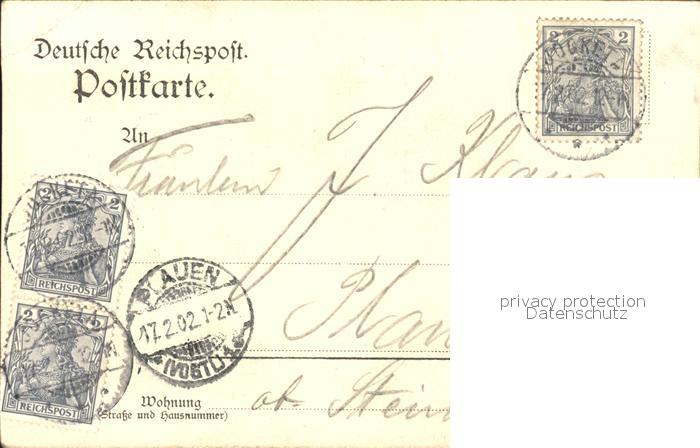 Deutsche Reichspost.
Postkarte.
An
Fräulein J. Klaus
Plau
ob. Stein
Wohnung
(Straße und Hausnummer)
2 2
REICHSPOST
2 2
REICHSPOST
2 2
REICHSPOST
PLAUEN
17.2.02.1-2N
(VOGTL.)
privacy protection
Datenschutz